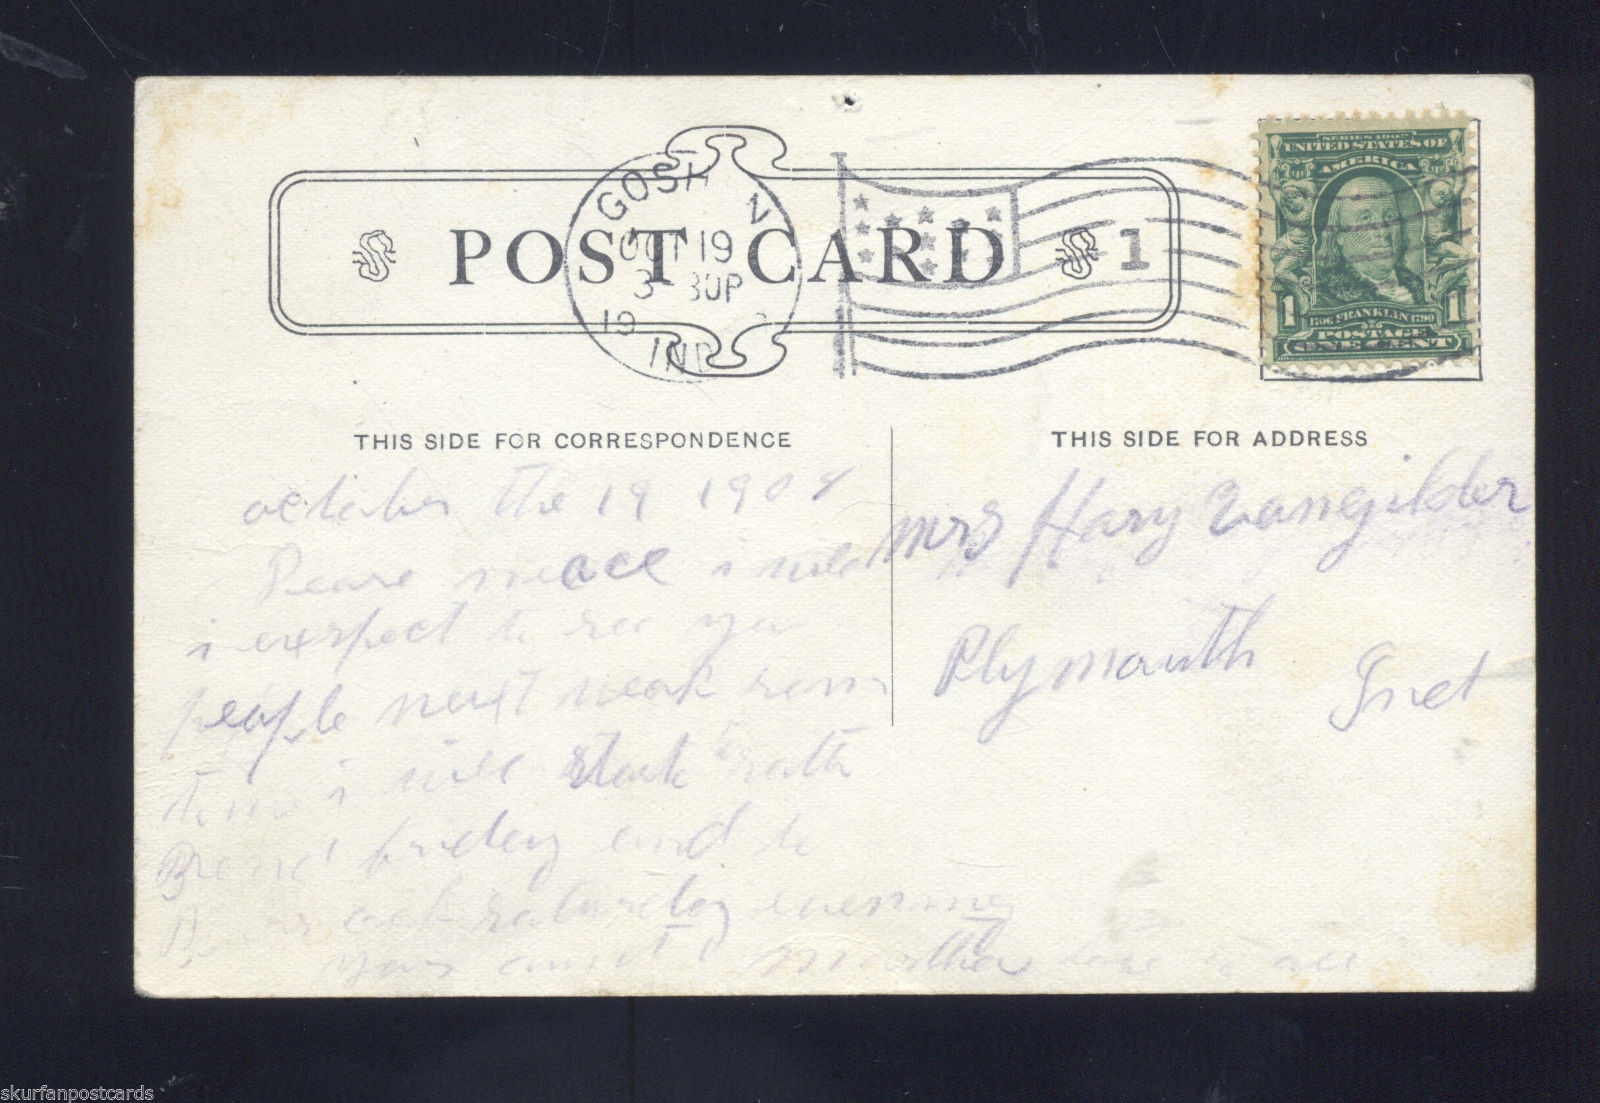 GOSH N
OCT 19
3 30P
19
IND
1
SERIES 1902
UNITED STATES OF
AMERICA
1 1
1706 FRANKLIN 1790
POSTAGE
ONE CENT
POST CARD
THIS SIDE FOR CORRESPONDENCE
october the 19 1908
Deare neace i will
i exspect to see you
people next weak som
time i will start to
friday and to
saturday evening
your aunt Martha love to all
THIS SIDE FOR ADDRESS
Mrs Hary Vangilder
Plymouth Ind
skurfanpostcards